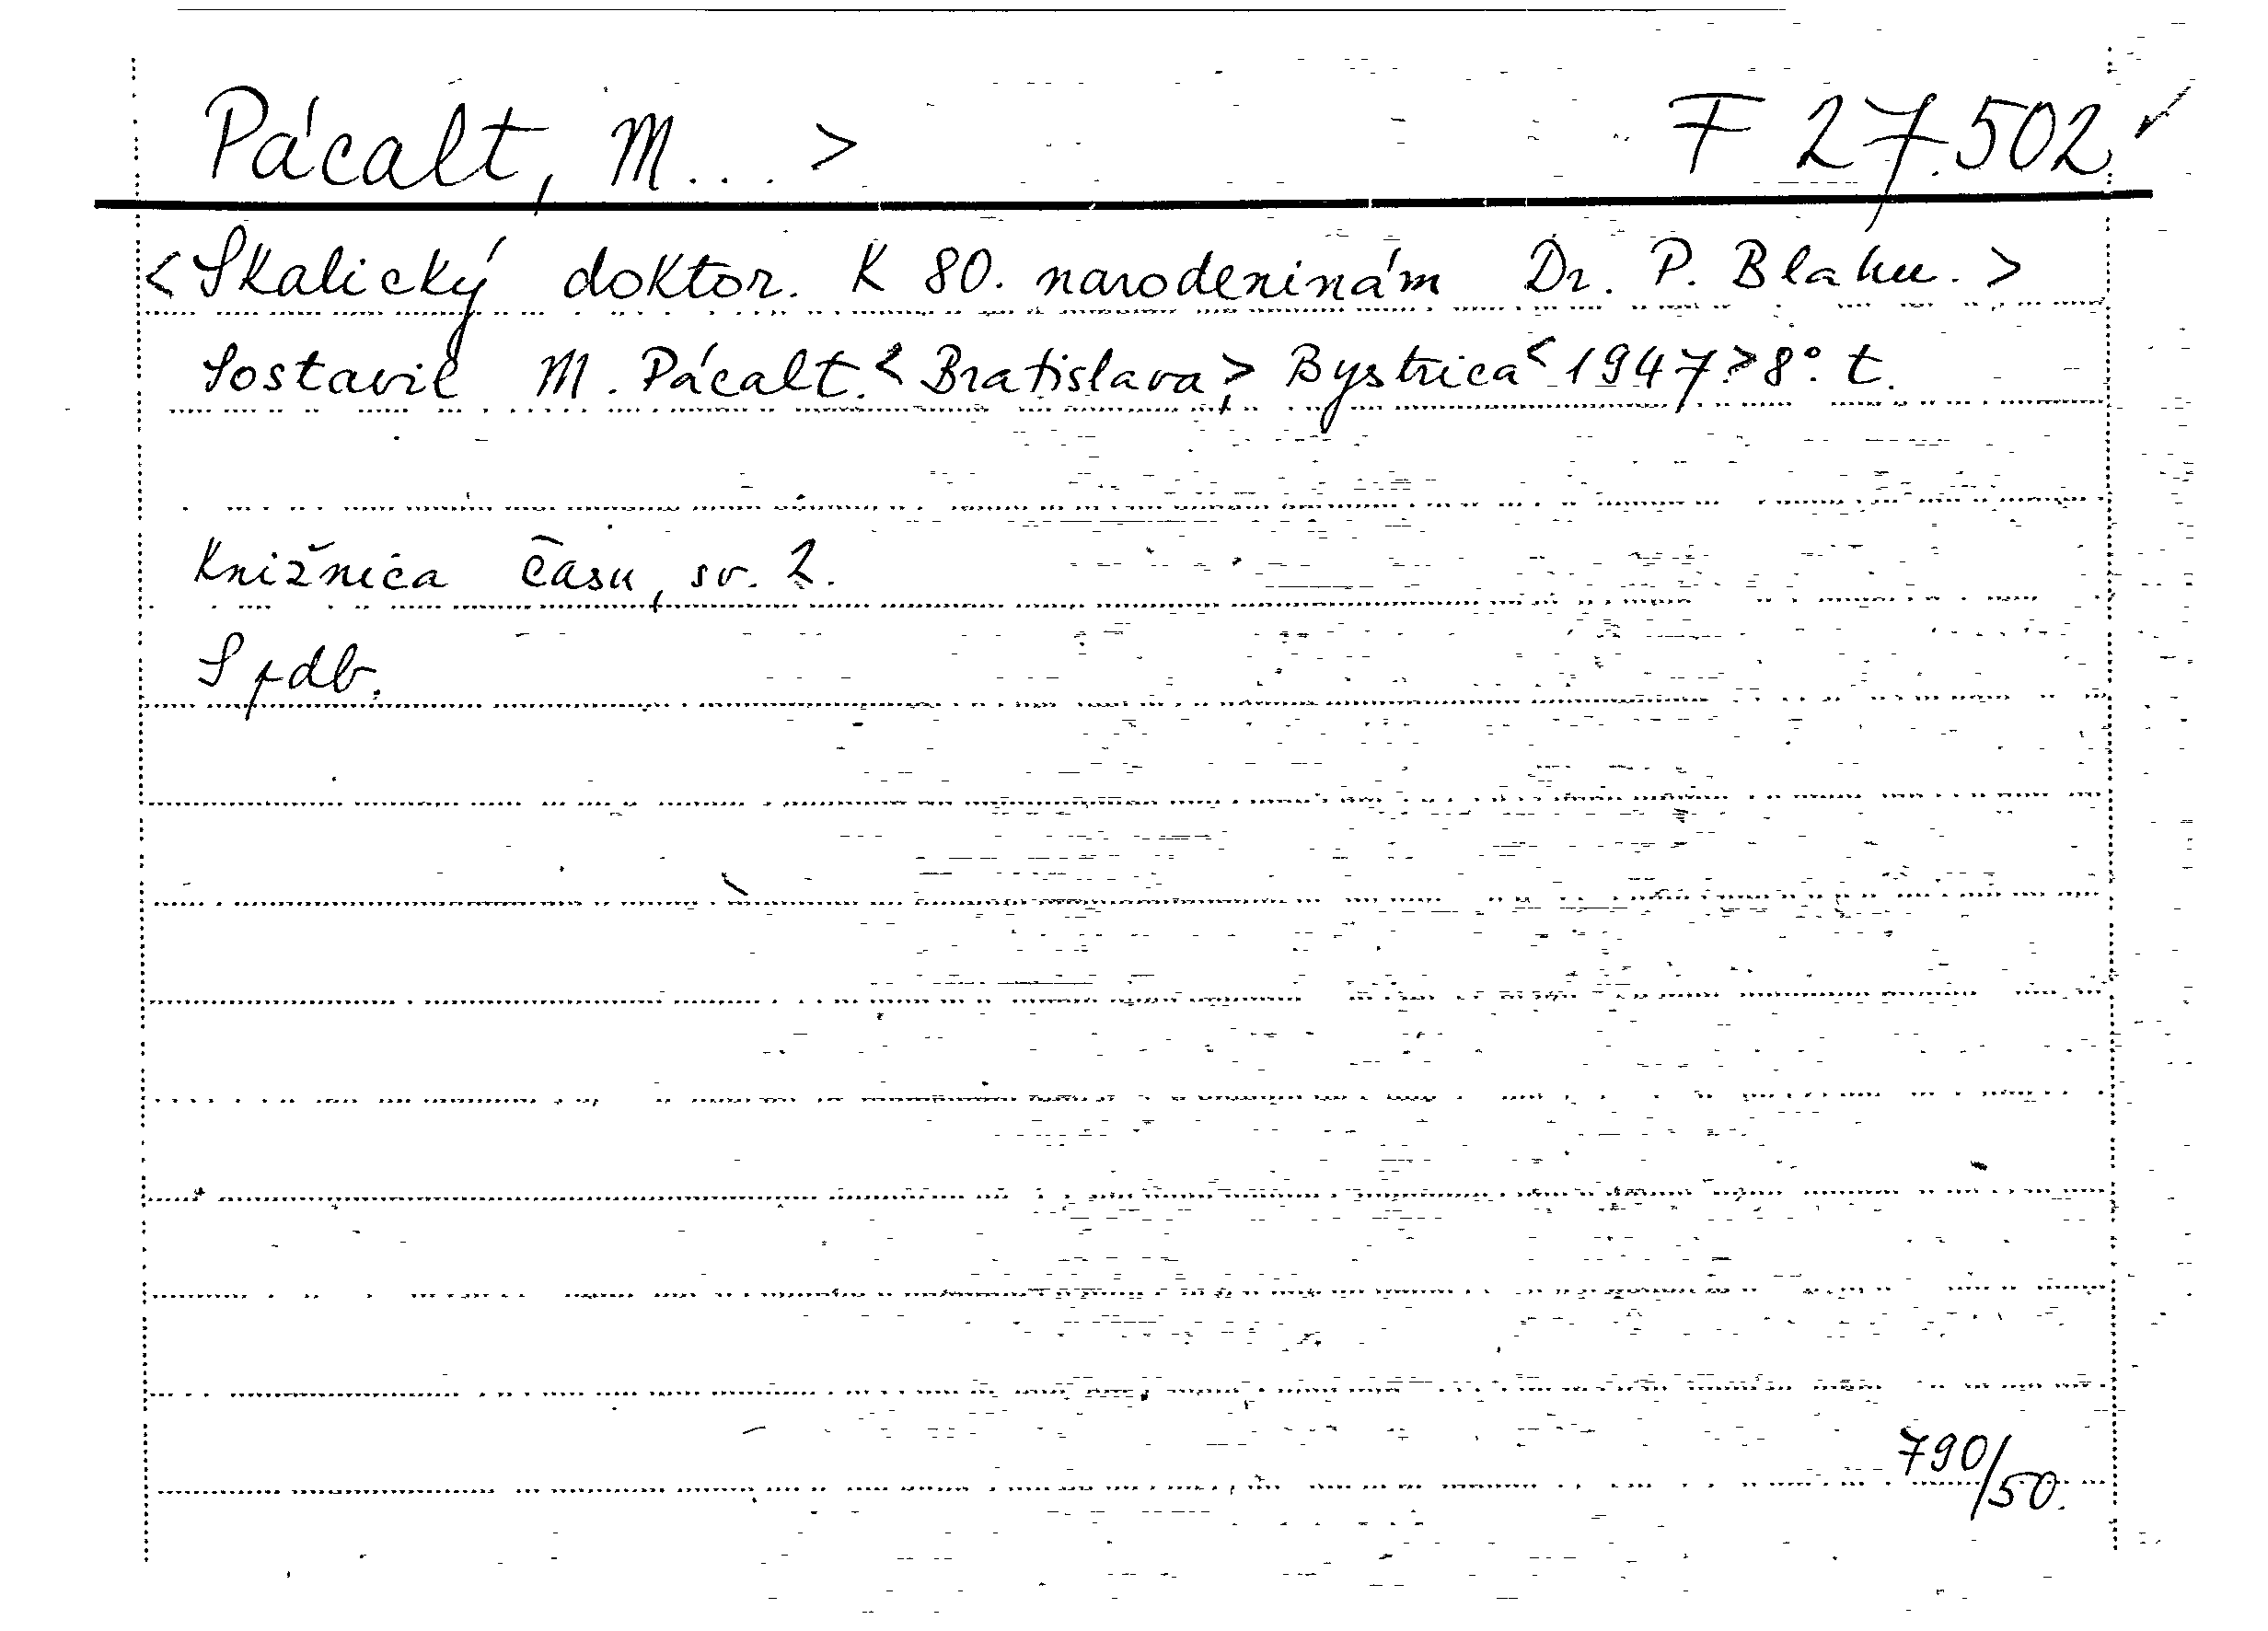 Pácalt, M... > F 27.502 ✓
< Skalický doktor. K 80. narodeninám Dr. P. Blahu. >
Sostavil M. Pácalt. < Bratislava, > Bystrica < 1947 > 8°. t.
Knižnica času, sv. 2.
S pdb.
790/50.